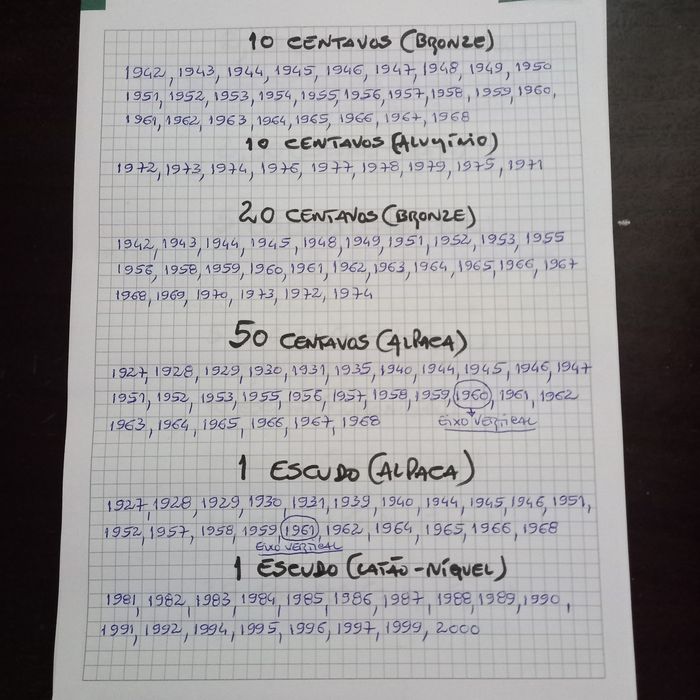 10 CENTAVOS (BRONZE)
1942, 1943, 1944, 1945, 1946, 1947, 1948, 1949, 1950
1951, 1952, 1953, 1954, 1955, 1956, 1957, 1958, 1959, 1960,
1961, 1962, 1963, 1964, 1965, 1966, 1967, 1968
10 CENTAVOS (ALUMÍNIO)
1972, 1973, 1974, 1976, 1977, 1978, 1979, 1975, 1971
20 CENTAVOS (BRONZE)
1942, 1943, 1944, 1945, 1948, 1949, 1951, 1952, 1953, 1955
1956, 1958, 1959, 1960, 1961, 1962, 1963, 1964, 1965, 1966, 1967
1968, 1969, 1970, 1973, 1972, 1974
50 CENTAVOS (ALPACA)
1927, 1928, 1929, 1930, 1931, 1935, 1940, 1944, 1945, 1946, 1947
1951, 1952, 1953, 1955, 1956, 1957, 1958, 1959, 1960, 1961, 1962
1963, 1964, 1965, 1966, 1967, 1968
EIXO VERTICAL
1 ESCUDO (ALPACA)
1927, 1928, 1929, 1930, 1931, 1939, 1940, 1944, 1945, 1946, 1951,
1952, 1957, 1958, 1959, 1961, 1962, 1964, 1965, 1966, 1968
EIXO VERTICAL
1 ESCUDO (LATÃO-NÍQUEL)
1981, 1982, 1983, 1984, 1985, 1986, 1987, 1988, 1989, 1990,
1991, 1992, 1994, 1995, 1996, 1997, 1999, 2000